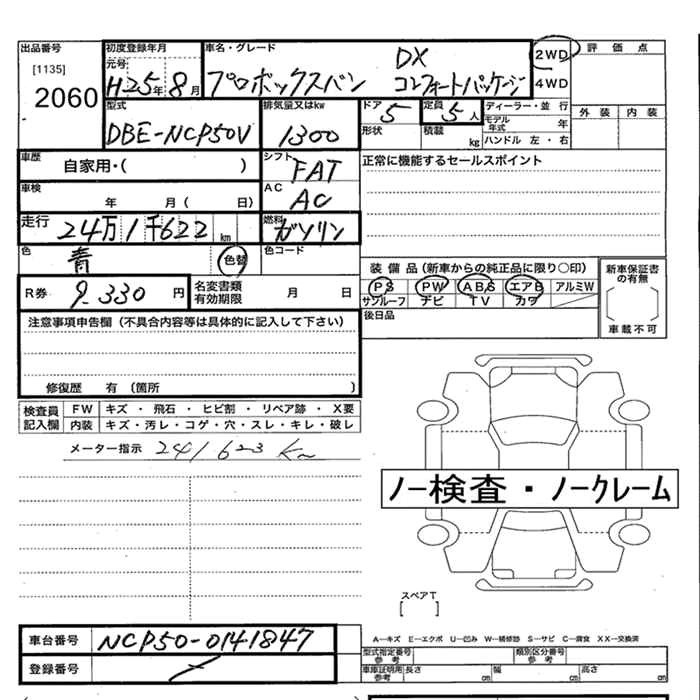 出品番号
[1135]
2060
初度登録年月
元号
H25年8月
車名・グレード
プロボックスバン
DX
コンフォートパッケージ
2WD
4WD
評価点
外装 内装
型式
DBE-NCP50V
排気量又はkw
1300
ドア 5
形状
定員 5人
積載 kg
ディーラー・並行
モデル年式 年
ハンドル 左・右
車歴
自家用・( )
シフト
FAT
正常に機能するセールスポイント
車検
年 月( 日)
AC
AC
走行
24万1千622 km
燃料
ガソリン
色
青
色替
色コード
装備品(新車からの純正品に限り○印)
PS PW ABS エアB アルミW
サンルーフ ナビ TV カワ
新車保証書の有無
車載不可
R券
9,330円
名変書類有効期限
月 日
後日品
注意事項申告欄(不具合内容等は具体的に記入して下さい)
修復歴 有(箇所 )
検査員記入欄
FW キズ・飛石・ヒビ割・リペア跡・X要
内装 キズ・汚レ・コゲ・穴・スレ・キレ・破レ
メーター指示 241623 Km
ノー検査・ノークレーム
スペアT
[ ]
車台番号
NCP50-0141847
登録番号
A−キズ E−エクボ U−凹み W−補修跡 S−サビ C−腐食 XX−交換済
型式指定番号 参考
類別区分番号 参考
車庫証明用 参考
長さ cm 幅 cm 高さ cm